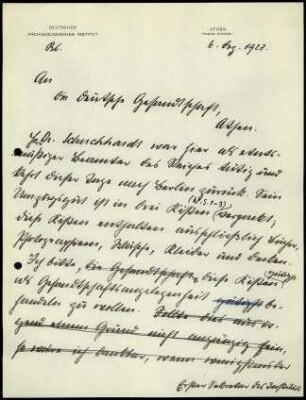 DEUTSCHES
ARCHÄOLOGISCHES INSTITUT
ATHEN
6. Dez. 1927.
An
die Deutsche Gesandtschaft,
Athen.
Hr. Dr. Schuchhardt war hier als etats-
mäßiger Beamter des Reiches tätig und
kehrt dieser Tage nach Berlin zurück. Sein
Umzugsgut ist in drei Kisten (N. S. 1-3) verpackt;
diese Kisten enthalten ausschließlich Bücher,
Photographien, Wäsche, Kleider und
Ich bitte, die Gesandtschaft diese Kisten gütigst
als Gesandtschaftsangelegenheit gütigst be-
handeln zu wollen. Sollte dies aus ir-
gend einem Grund nicht angängig sein,
so wäre ich dankbar, wenn wenigstens der
Erster Sekretar des Instituts